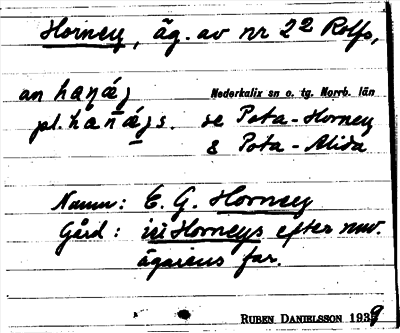 Horney, äg. av nr 2² Rolfs,
an haṇág Nederkalix sn o. tg. Norrb. län
pl. haṇágs. se Pota-Horney
& Pota-Alida
Namn: E. G. Horney
Gård: in Horneys efter nuv.
ägarens far.
RUBEN DANIELSSON 1939